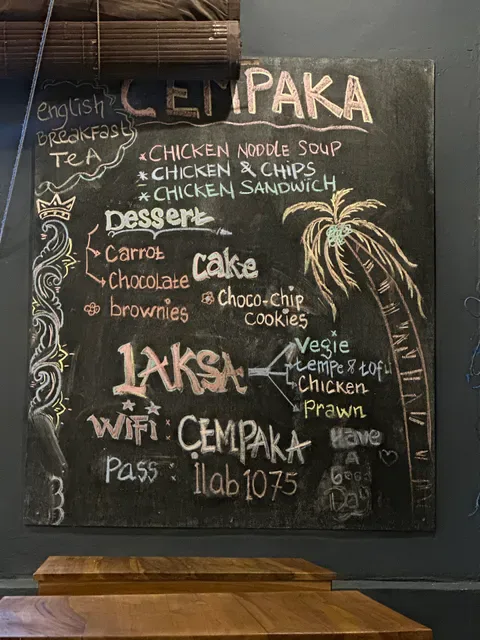 English
BREAKFAST
TEA
CEMPAKA
*CHICKEN NODDLE SOUP
*CHICKEN & CHIPS
*CHICKEN SANDWICH
Dessert
Carrot
Chocolate
Cake
brownies
Choco-chip
cookies
LAKSA
Vegie
tempe & tofu
Chicken
Prawn
WiFi : CEMPAKA
Pass : 11ab1075
Have
A
Good
Day